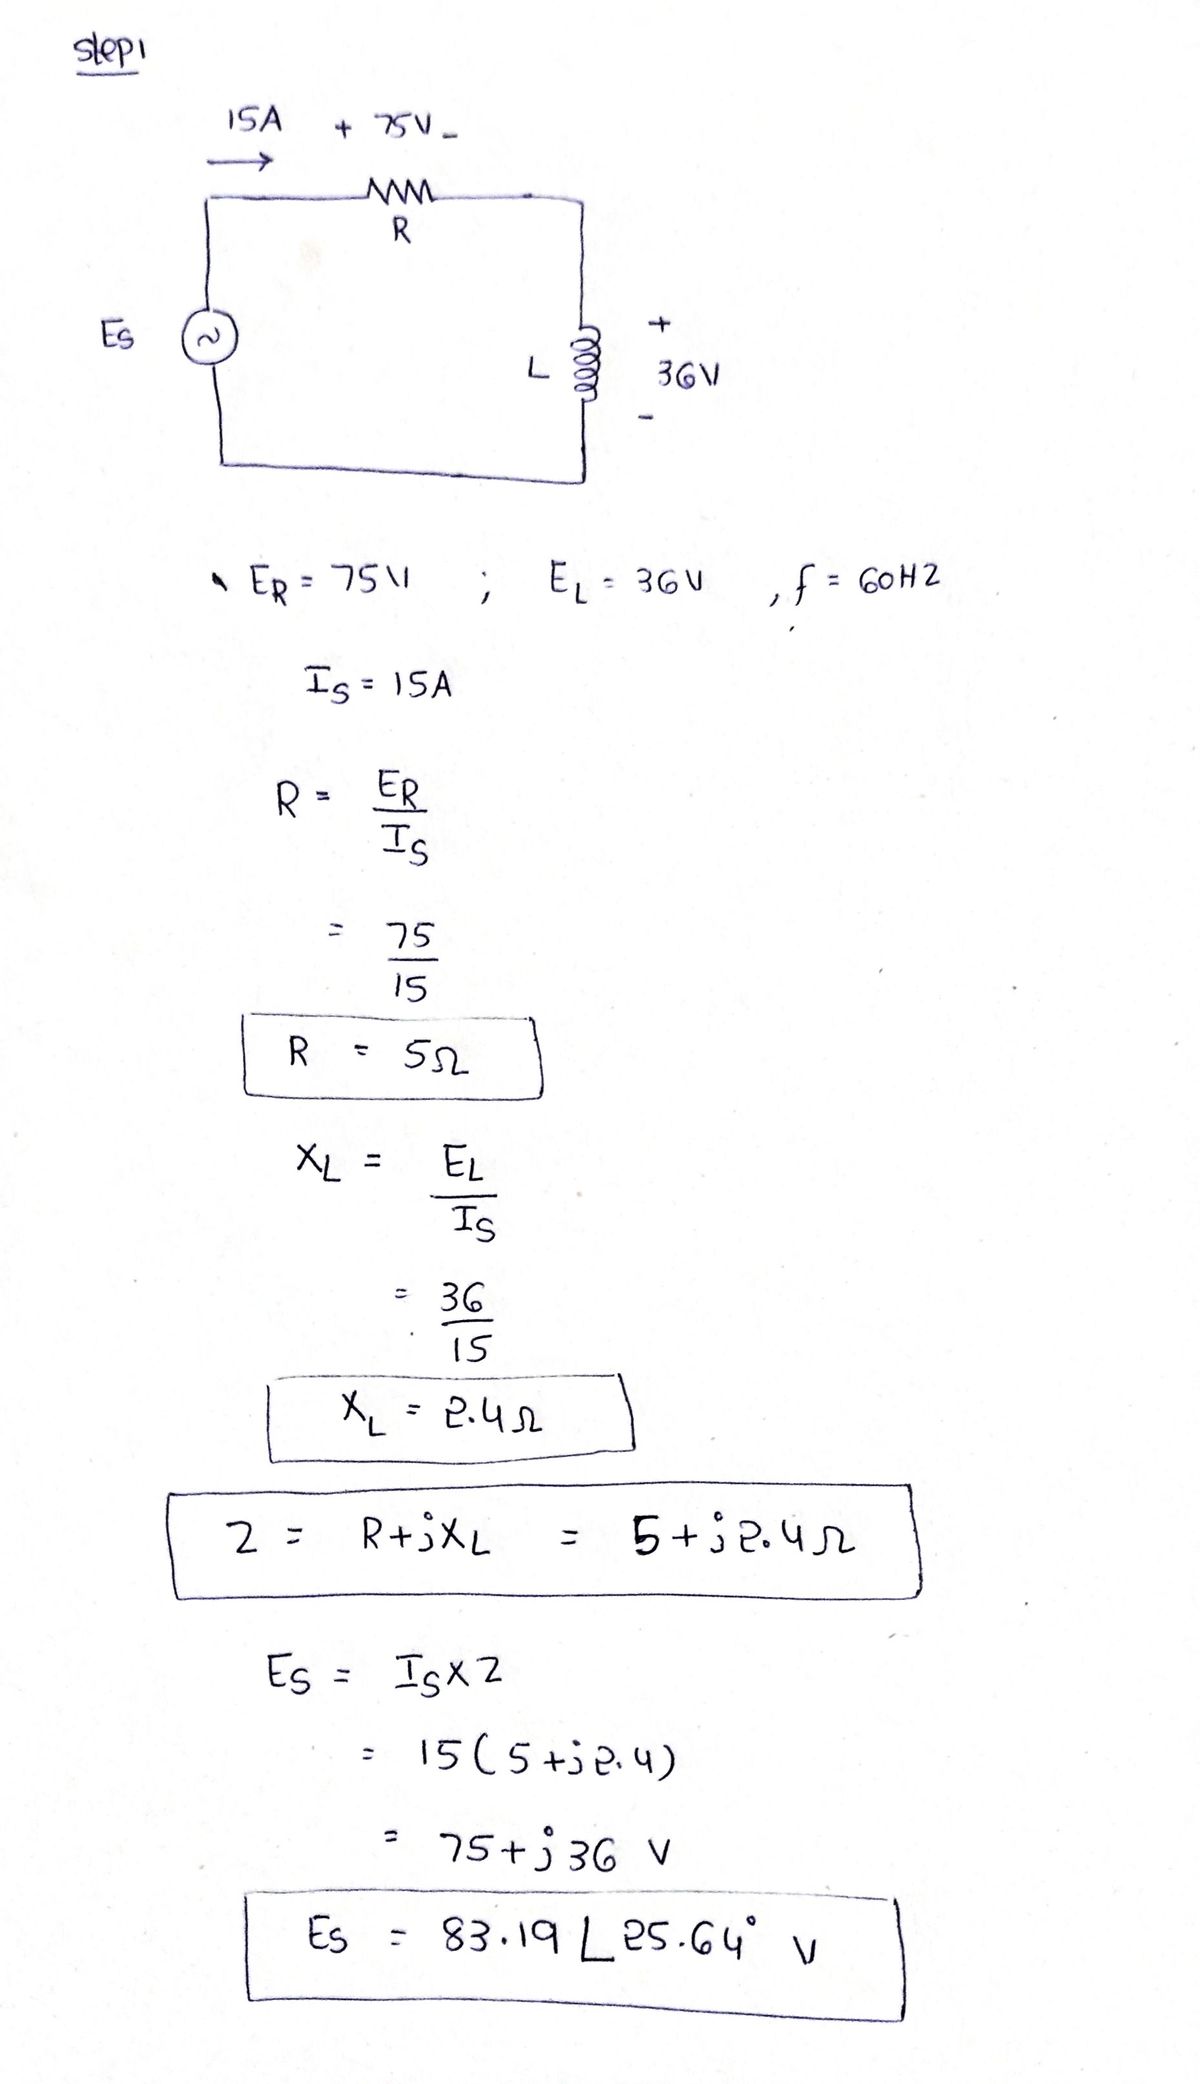 Step1
15A + 75V -
R
Es
~
L
+
36V
-
ER = 75V ; EL = 36V , f = 60HZ
IS = 15A
R = ER
IS
= 75
15
R = 5Ω
XL = EL
IS
= 36
15
XL = 2.4Ω
Z = R+jXL = 5+j2.4Ω
ES = IS×Z
= 15(5+j2.4)
= 75+j36 V
ES = 83.19∠25.64° V